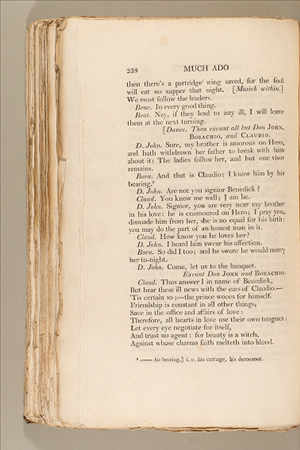 228 MUCH ADO
then there's a partridge' wing saved, for the fool
will eat no supper that night. [Musick within.]
We must follow the leaders.
Bene. In every good thing.
Beat. Nay, if they lead to any ill, I will leave
them at the next turning.
[Dance. Then exeunt all but Don JOHN,
BORACHIO, and CLAUDIO.
D. John. Sure, my brother is amorous on Hero,
and hath withdrawn her father to break with him
about it: The ladies follow her, and but one visor
remains.
Bora. And that is Claudio: I know him by his
bearing.*
D. John. Are not you signior Benedick?
Claud. You know me well; I am he.
D. John. Signior, you are very near my brother
in his love: he is enamoured on Hero; I pray you,
dissuade him from her, she is no equal for his birth:
you may do the part of an honest man in it.
Claud. How know you he loves her?
D. John. I heard him swear his affection.
Bora. So did I too; and he swore he would marry
her to-night.
D. John. Come, let us to the banquet.
Exeunt Don JOHN and BORACHIO.
Claud. Thus answer I in name of Benedick,
But hear these ill news with the ears of Claudio.—
'Tis certain so;—the prince wooes for himself.
Friendship is constant in all other things,
Save in the office and affairs of love:
Therefore, all hearts in love use their own tongues;
Let every eye negotiate for itself,
And trust no agent: for beauty is a witch,
Against whose charms faith melteth into blood.
* —— his bearing,] i. e. his carriage, his demeanor.